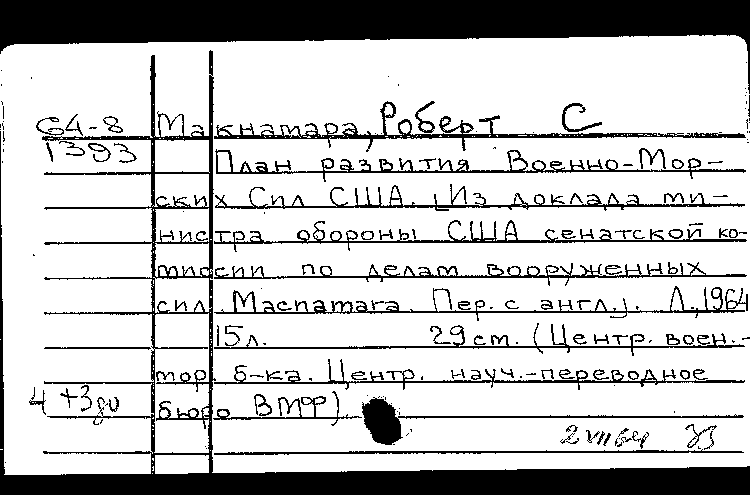 64-8 Макнамара, Роберт С
1393 План развития Военно-Мор-
ских Сил США. [Из доклада ми-
нистра обороны США сенатской ко-
миссии по делам вооруженных
сил. Macnamara. Пер. с англ.]. Л., 1964
15л. 29 cm. (Центр. воен.-
мор. б-ка. Центр. науч.-переводное
4 +3 бюро ВМФ)
2 VII 64